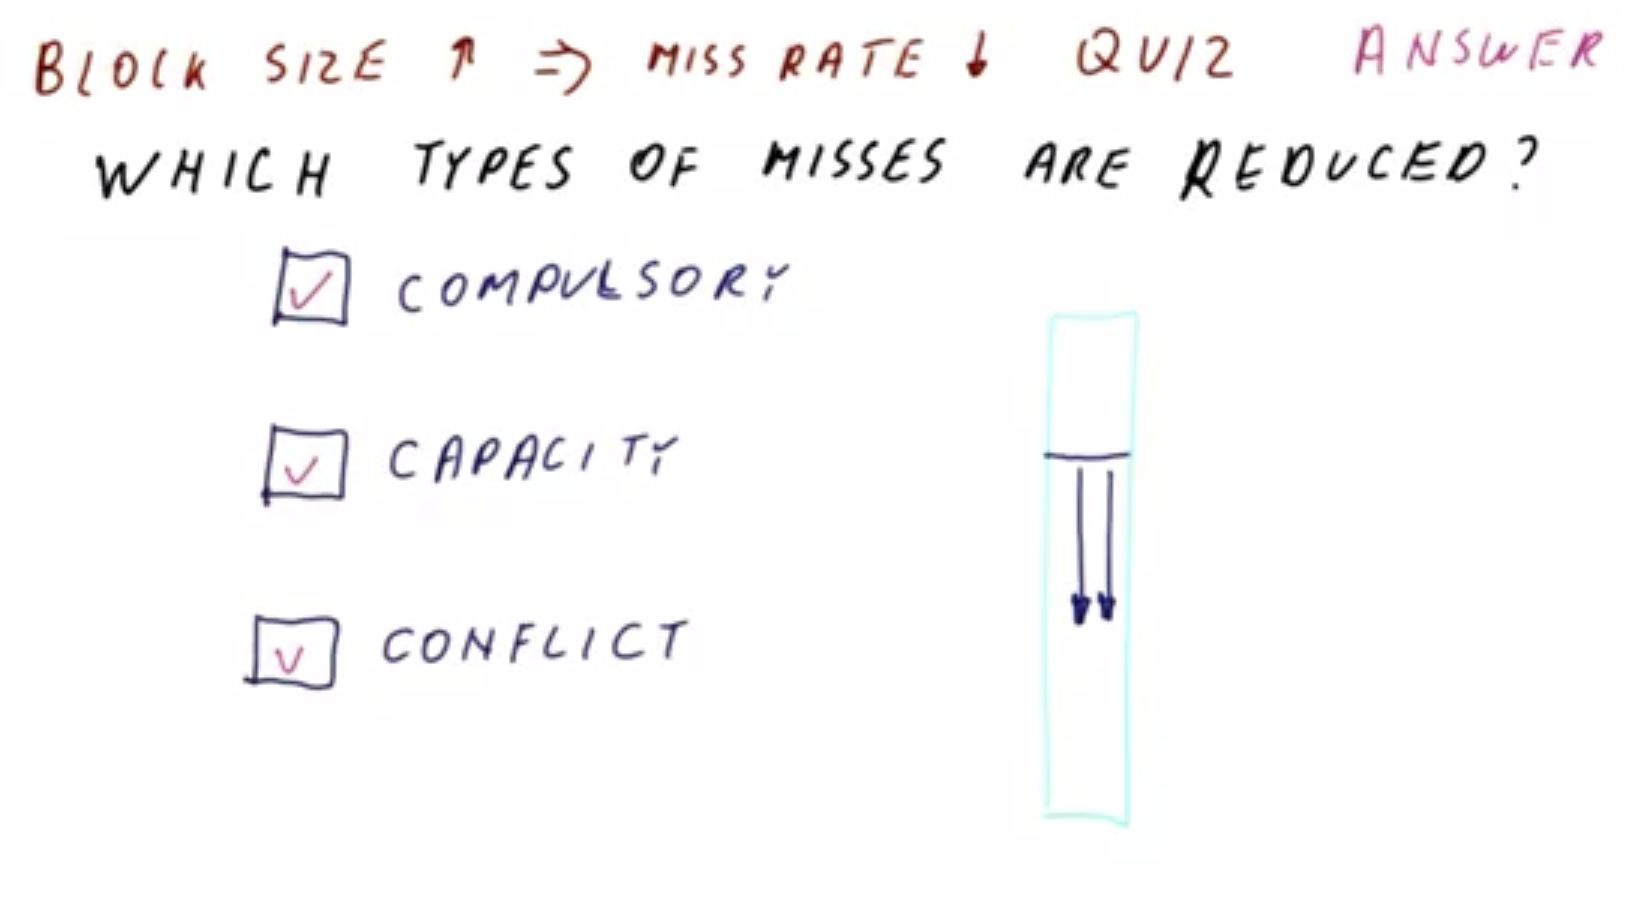 BLOCK SIZE ↑ ⇒ MISS RATE ↓ QUIZ ANSWER
WHICH TYPES OF MISSES ARE REDUCED?
✓ COMPULSORY
✓ CAPACITY
✓ CONFLICT